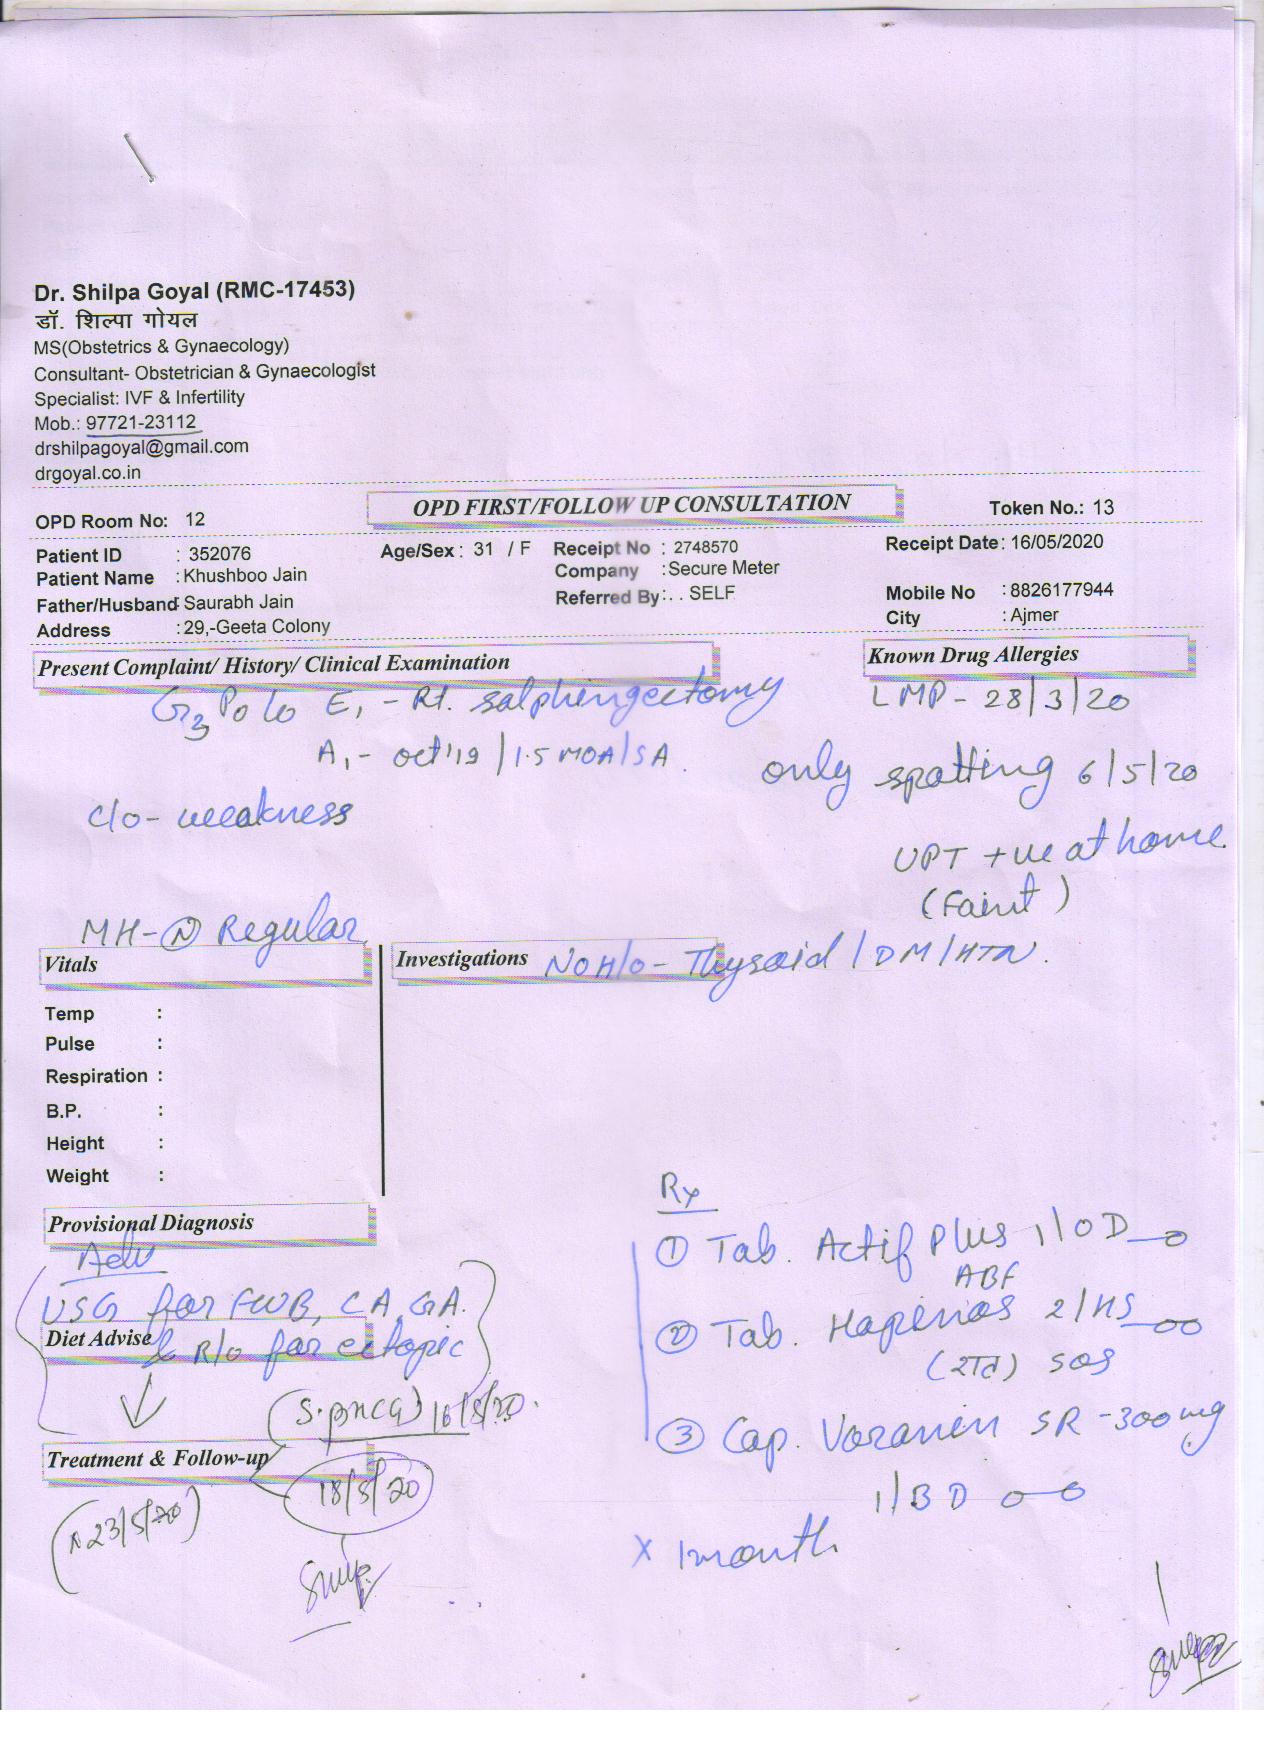 Dr. Shilpa Goyal (RMC-17453)
डॉ. शिल्पा गोयल
MS(Obstetrics & Gynaecology)
Consultant- Obstetrician & Gynaecologist
Specialist: IVF & Infertility
Mob.: 97721-23112
drshilpagoyal@gmail.com
drgoyal.co.in
OPD Room No: 12
OPD FIRST/FOLLOW UP CONSULTATION
Token No.: 13
Patient ID : 352076
Age/Sex : 31 / F
Receipt No : 2748570
Receipt Date: 16/05/2020
Patient Name : Khushboo Jain
Company : Secure Meter
Father/Husband: Saurabh Jain
Referred By: . . SELF
Mobile No : 8826177944
Address : 29,-Geeta Colony
City : Ajmer
Present Complaint/ History/ Clinical Examination
Known Drug Allergies
G3 P0 L0 E1 - Rt. salphingectomy
LMP - 28/3/20
A1 - oct'19 / 1.5 MOA/SA.
only spotting 6/5/20
c/o - weakness
UPT +ve at home
(Faint)
MH - N Regular
Vitals
Investigations
NO H/O - Thyroid / DM / HTN.
Temp :
Pulse :
Respiration :
B.P. :
Height :
Weight :
Provisional Diagnosis
Adv
USG for FWB, CA, GA.
Diet Advise
& R/o for ectopic
(S. βHCG) 16/5/20.
Treatment & Follow-up
18/5/20
23/5/20
Rx
① Tab. Actif Plus 1/OD
ABF
② Tab. 2/HS
(रात) SOS
③ Cap. SR - 300 mg
1/BD
x 1 month